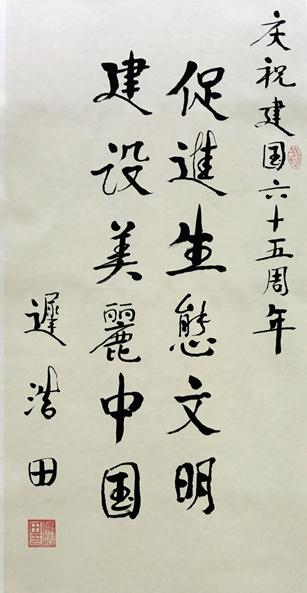 庆祝建国六十五周年
促進生態文明
建设美麗中国
遲浩田